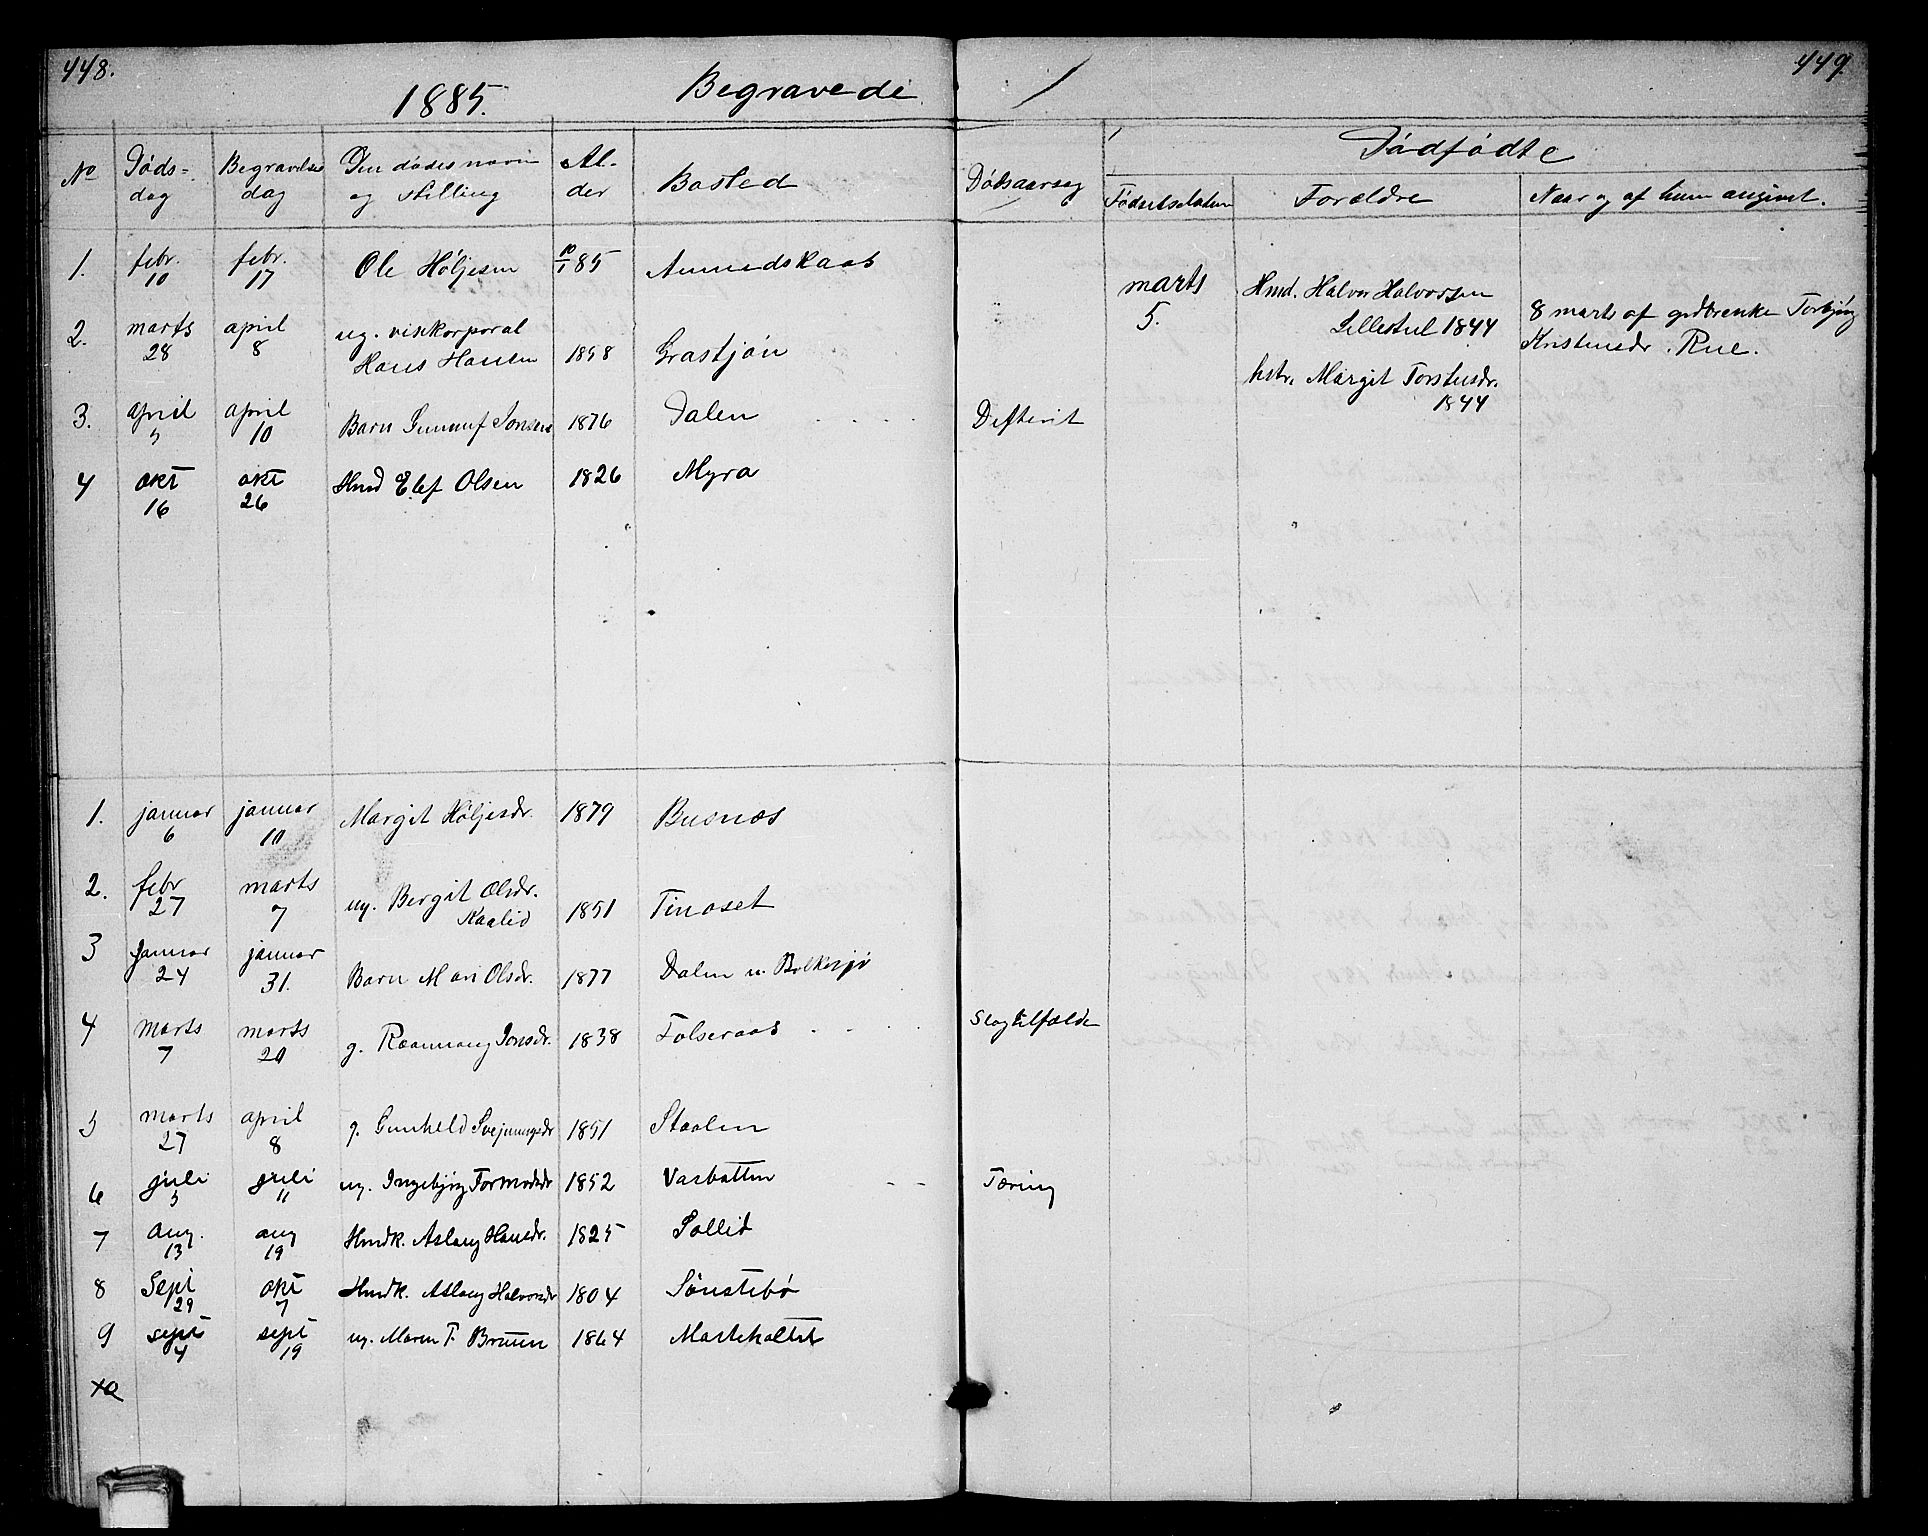 448.
449.
1885. Begravede
No
Døds- dag
Begravelses dag
Den dødes navn og stilling
Al- der
Bosted
Dødsaarsag
Dødfødte
Fødselsdatum
Forældre
Naar og af hvem angivet.
1. febr. 10 febr. 17 Ole Høljesen 10/1 85 Aamodskaas
2. marts 28 april 8 ug. visekorporal
Hans Hansen 1858 Grastjøn
3. april 5 april 10 Barn Gunnuf Jonsen 1876 Dalen . . . . Difterit
4 okt 16 okt 26 Hmd Elef Olsen 1826 Myra
marts 5. Hmd. Halvor Halvorsen
Lillestul 1844
hstr. Margit Torstensdr.
1844
8 marts af gdbrenke Torbjørg
Kristensdr. Rue.
1. januar 6 januar 10 Margit Høljesdr. 1879 Busnæs
2. febr 27 marts 7 ug. Bergit Olsdr.
Kaalid 1851 Tinoset
3 januar 24 januar 31. Barn Mari Olsdr. 1877 Dalen u. Bolkesjø
4 marts 7 marts 20 g. Raannaug Jonsdr. 1838 Folseraas . . . Slagtilfælde
5 marts 27 april 8 g. Gunhild Svejnungsdr 1851 Staalen
6 juli 5 juli 11 ug. Ingebjørg Tormodsdr 1852 Vasbotten - - Tæring
7 aug. 13 aug 19 Hmdk. Aslaug Hansdr. 1825 Sollid
8 Sept 29 okt 7 Hmdk. Aslaug Halvorsdr 1804 Sønstebø
9 sept 4 sept 19 ug. Maren T. Bruun 1864 Marteholtet